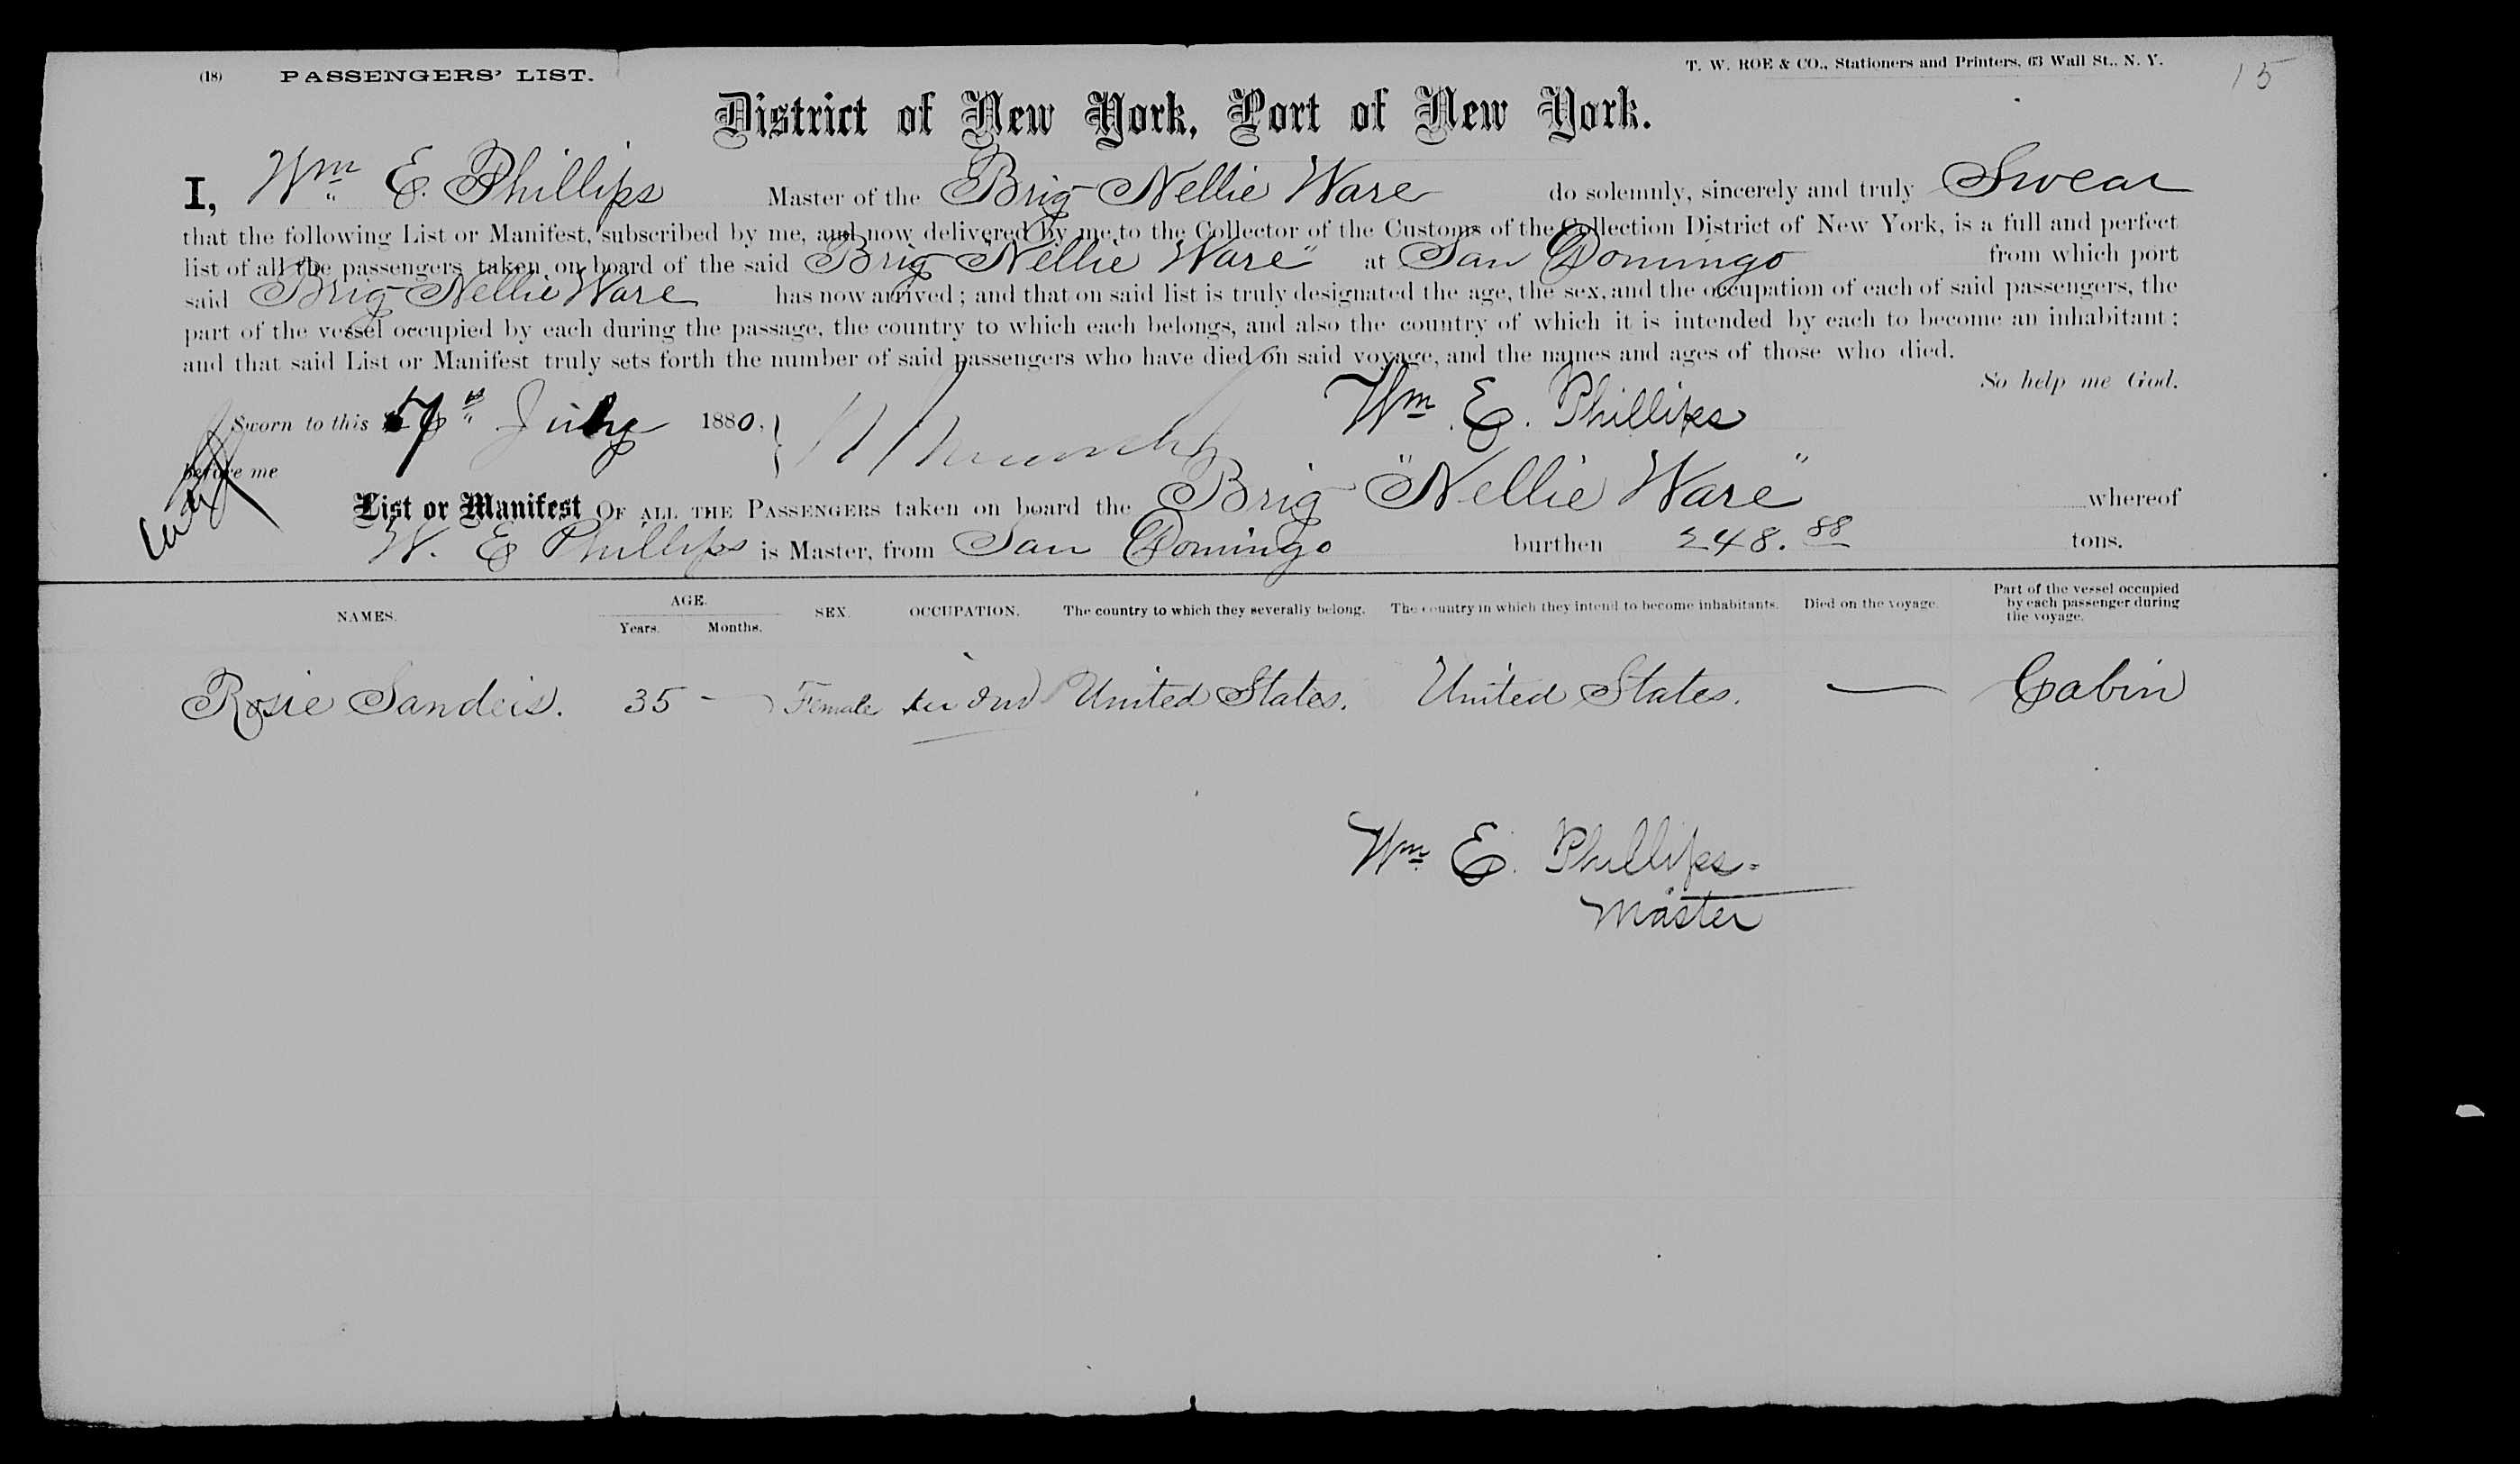 (18) PASSENGERS' LIST.
T. W. ROE & CO., Stationers and Printers, 63 Wall St., N. Y.
15
District of New York, Port of New York.
I, Wm E. Phillips Master of the Brig Nellie Ware do solemnly, sincerely and truly Swear
that the following List or Manifest, subscribed by me, and now delivered by me to the Collector of the Customs of the Collection District of New York, is a full and perfect
list of all the passengers taken on board of the said Brig "Nellie Ware" at San Domingo from which port
said Brig Nellie Ware has now arrived; and that on said list is truly designated the age, the sex, and the occupation of each of said passengers, the
part of the vessel occupied by each during the passage, the country to which each belongs, and also the country of which it is intended by each to become an inhabitant;
and that said List or Manifest truly sets forth the number of said passengers who have died on said voyage, and the names and ages of those who died.
So help me God.
Sworn to this July 1880,
Wm E. Phillips
before me
List or Manifest OF ALL THE PASSENGERS taken on board the Brig "Nellie Ware" whereof
W. E Phillips is Master, from San Domingo burthen 248.88 tons.
NAMES. AGE. Years. Months. SEX. OCCUPATION. The country to which they severally belong. The country in which they intend to become inhabitants. Died on the voyage. Part of the vessel occupied by each passenger during the voyage.
Rosie Sanders. 35 - Female United States. United States. — Cabin
Wm E. Phillips.
Master